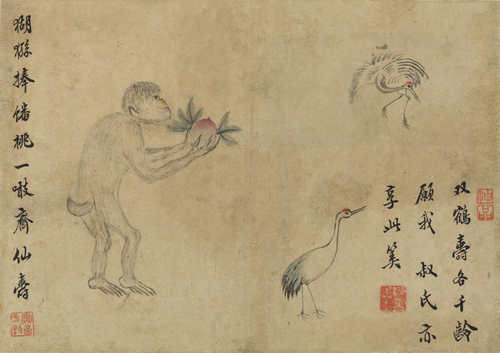 双鶴壽各千齡
願我 叔氏亦
享此筭
猢猻捧蟠桃一噉齊仙壽